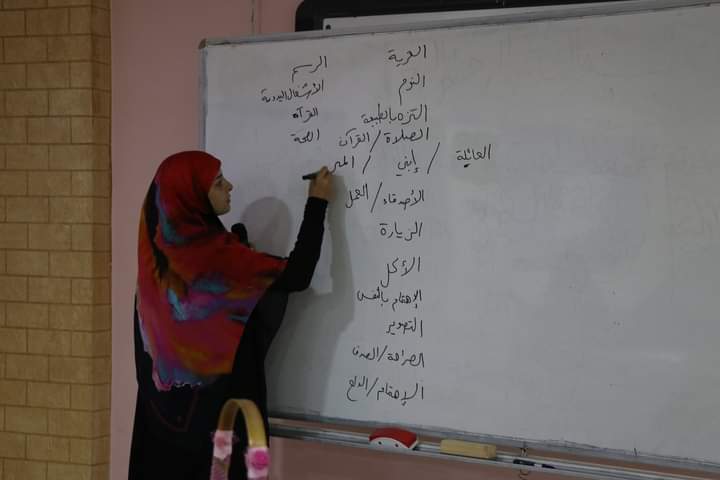 الحرية
النوم
التنزه بالطبيعة
الصلاة / القرآن
العائلة / إبني / المر
الأصدقاء / العمل
الزيارة
الأكل
الإهتمام بالنفس
التصوير
الصراحة / الصدق
الإهتمام / الدلع
الرسم
الأشغال اليدوية
القرآن
الصحة